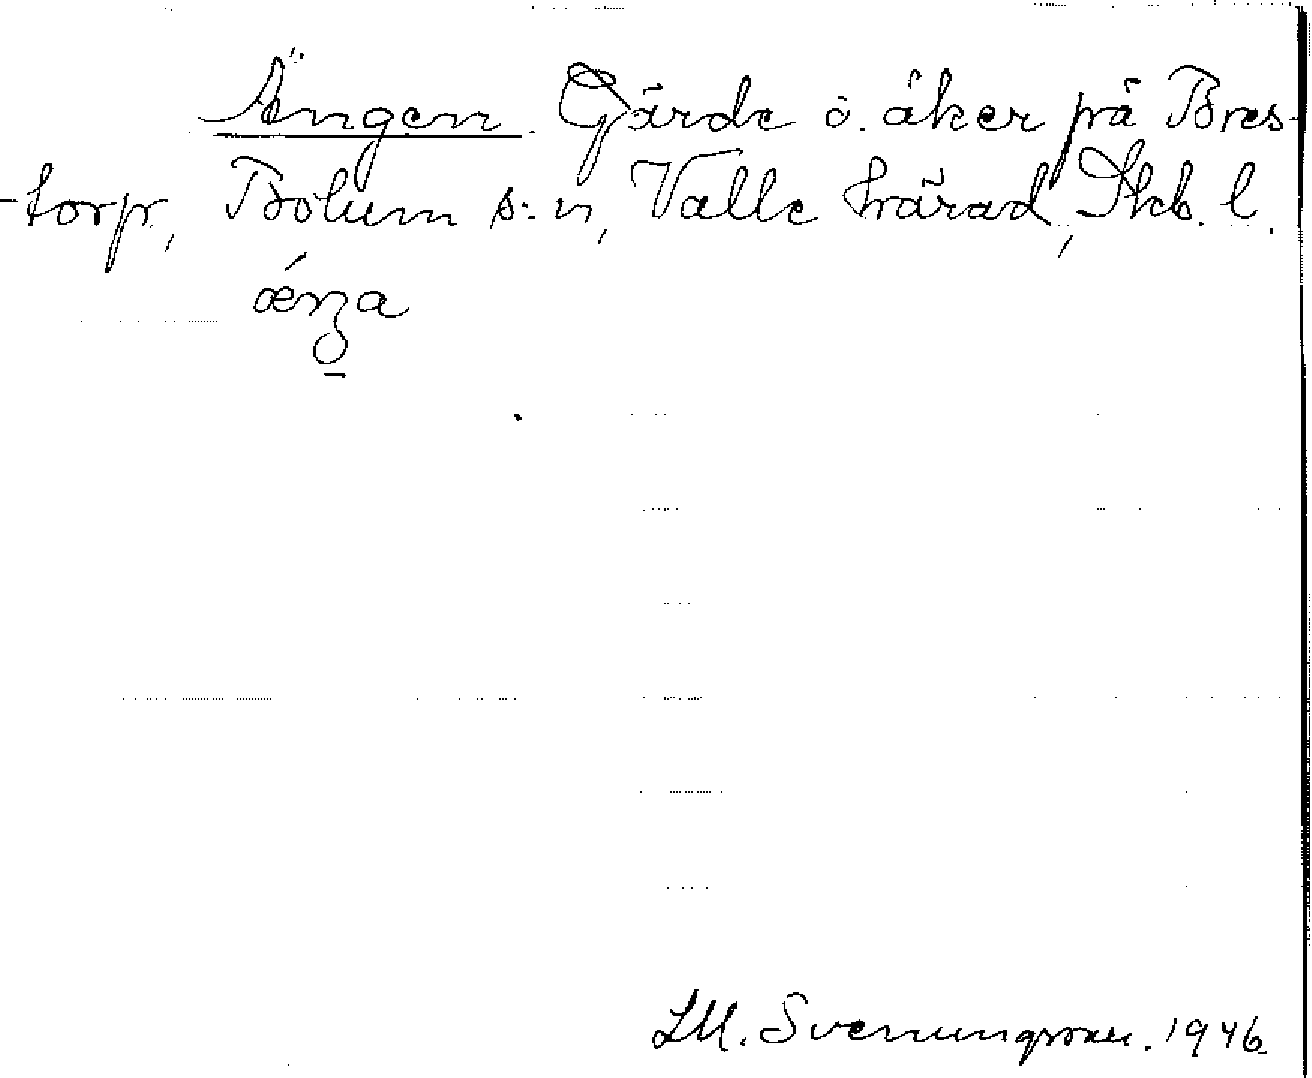 Ängen. Gärde o. åker på Bres-
-torp, Bolum s:n, Valle härad, Skb. l.
L.M. Svenungsson. 1946